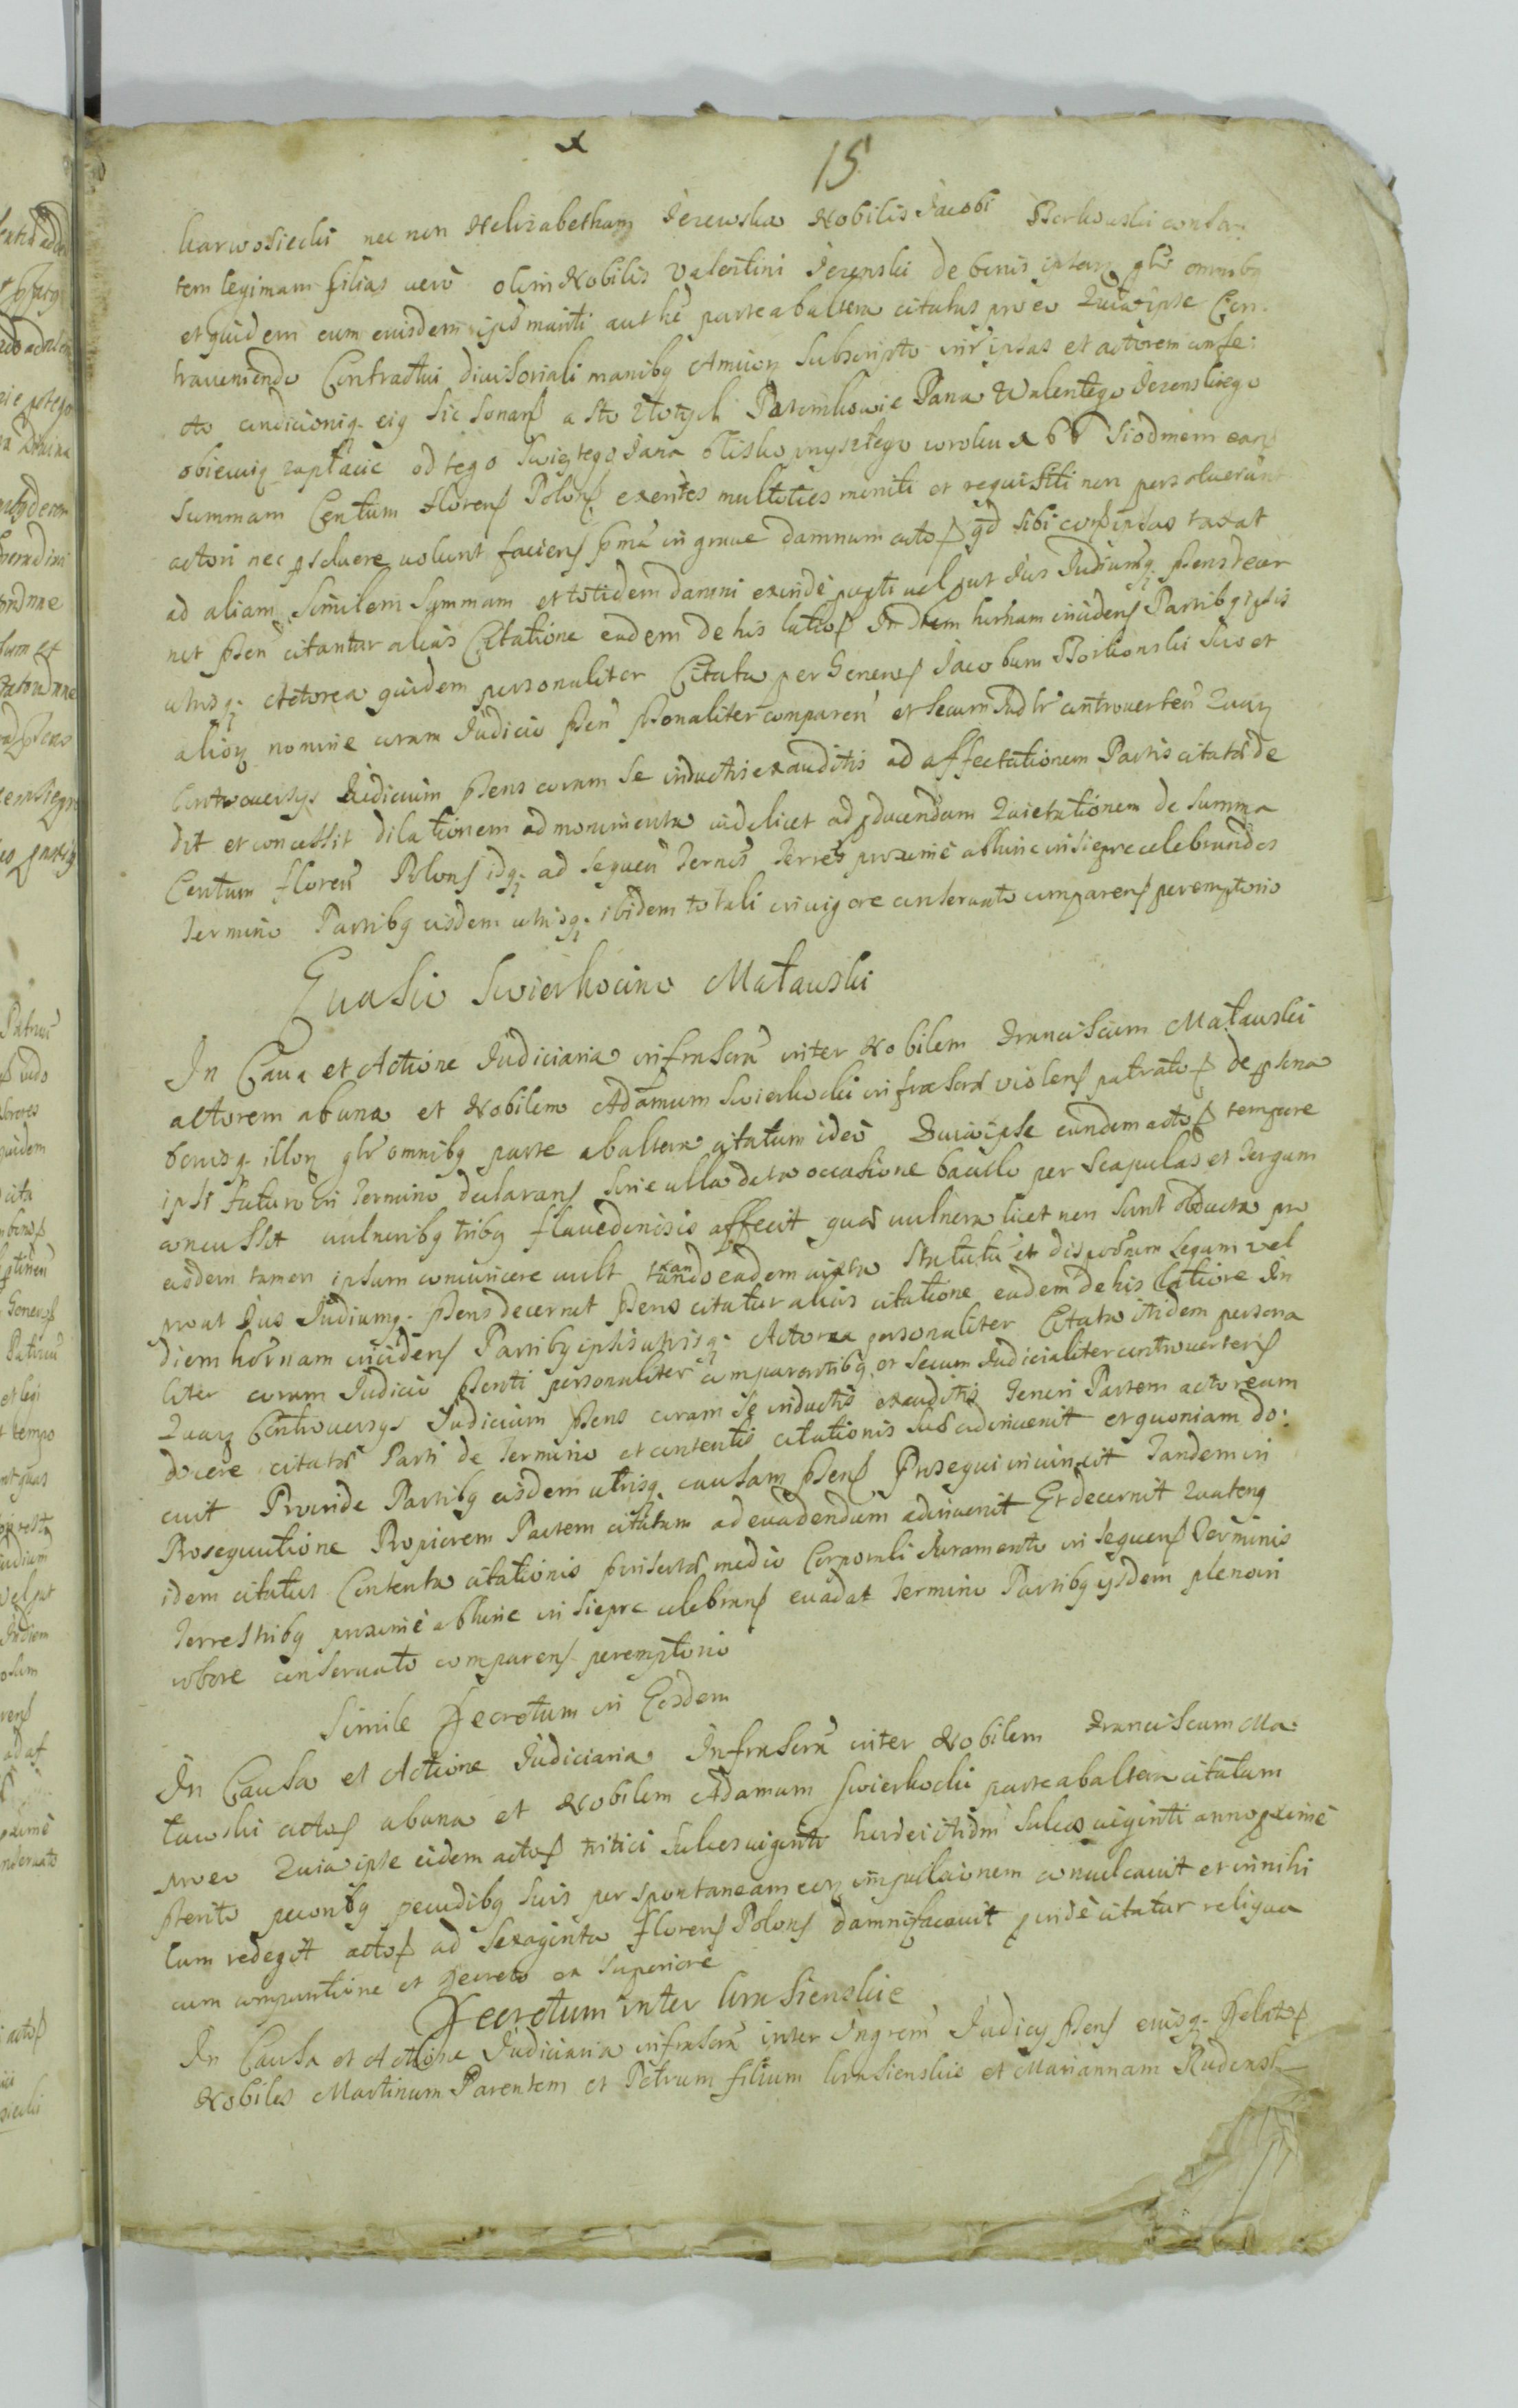 x 15
karwosiecki nec non Helizabetham Jezewska Nobilis Jacobi Borkowski consor:
tem legimam filias vero olim Nobilis Valentini Jezewski de bonis ipsarz glr omnibq
et quidem cum eiusdem parte ab altera citatas pro eo Quia ipse Con
traveniendo Contractui divisoriali manibq Amicorz Subscripto inr ipsas et actorem confe:
cto condicioniq eiq sic sonans a Sto złotych Pasimkowie Pana Walentego Jezewskiego
obiecuią zapłacic od tego Swiętego Jana blisko przyszłego w roku siodmem
Summam Centum florens Polons exentes multoties moniti et requisiti non persolverunt
actori nec psolvere volunt faciens in grave damnum actos qd sibi ipsas taxat
ad aliam similem Summam et totidem damni exinde passi vel put Jus Judiumq psens decer
net psen citantur alias Citatione eadem de his latios In diem hirnam incidens Partibq ipsis
utrisq Actorea quidem personaliter Citata per Generos Jacobum Borkowski suo et
aliorz nomine coram Judicio psen psonaliter comparen et secum Judlr controverten Quarz
Controversys Judicium psens coram se inductis exauditis ad affectationem Partis citatae de
dit et concessit dilationem ad monumenta videlicet ad pducendam Quietationem de Summa
Centum floren Polons idq ad sequen Termis Terres proxime abhinc in Sieprc celebrandos
Termino Partibq eisdem utrisq ibidem totali in vigore conservato comparens peremptorio
Evasio Swierkocino Matauski
In Causa et Actione Judiciaria infrascra inter Nobilem Franciscum Matauski
actorem ab una et Nobilem Adamum Swierkocki infrascra violens patratos de psona
bonisq illorz glr omnibq parte ab altera citatum ideo Quia ipse eundem actos tempore
ipsi futuro in Termino declarans sine ulla data occasione baculo per scapulas et tergum
concussit vulneribq tribq flavedinisis affecit quae vulnera licet non sunt obducta pro
eisdem tamen ipsum convincere vult eadem iuxta Statuta et disponem Legum vel
prout Jus Judiumq psens decernet psens citatur alias citatione eadem de his latiore In
diem hornam incidens Partibq ipsis utrisq Actorea personaliter Citata itidem persona
liter coram Judicio psenti personaliter comparentibq et secum Judicialiter controvertens
Quarz Controversys Judicium psens coram se inductis exauditis Teneri Partem actoream
docere citatae Parti de Termino et contentis citationis suae adinvenit et quoniam do:
cuit Proinde Partibq eisdem utrisq causam psens Prosequi iniunxit Tandem in
Prosequutione Propiorem Partem citatam ad evadendum adinvenit Et decernit Quatenq
idem citatus Contenta citationis medio Corporali Juramento in sequens Terminis
Terrestribq proxime abhinc in Sieprc celebrans evadat Termino Partibq ysdem pleno in
robore conservato comparens peremptorio
Simile Decretum in Eosdem
In Causa et Actione Judiciaria Infrascra inter Nobilem Franciscum Ma:
tawski actos ab una et Nobilem Adamum Swierkocki parte ab altera citatum
pro eo Quia ipse eidem actos tritici sulcos viginti hordei itidm sulcos viginti anno pxime
pterito pecoribq pecudibq suis per spontaneam eorz impulsionem conculcavit et in nihi
lum redegit actos ad Sexaginta florens Polons damnificavit pinde citatur reliqua
cum comparitione et Decreto ex Superiore
Decretum inter Krasienskie
In Causa et Actione Judiciaria infrascra inter Ingrem Judicy psens eiusq Delatos
Nobiles Martinum Parentem et Petrum filium Krasienskie et Mariannam